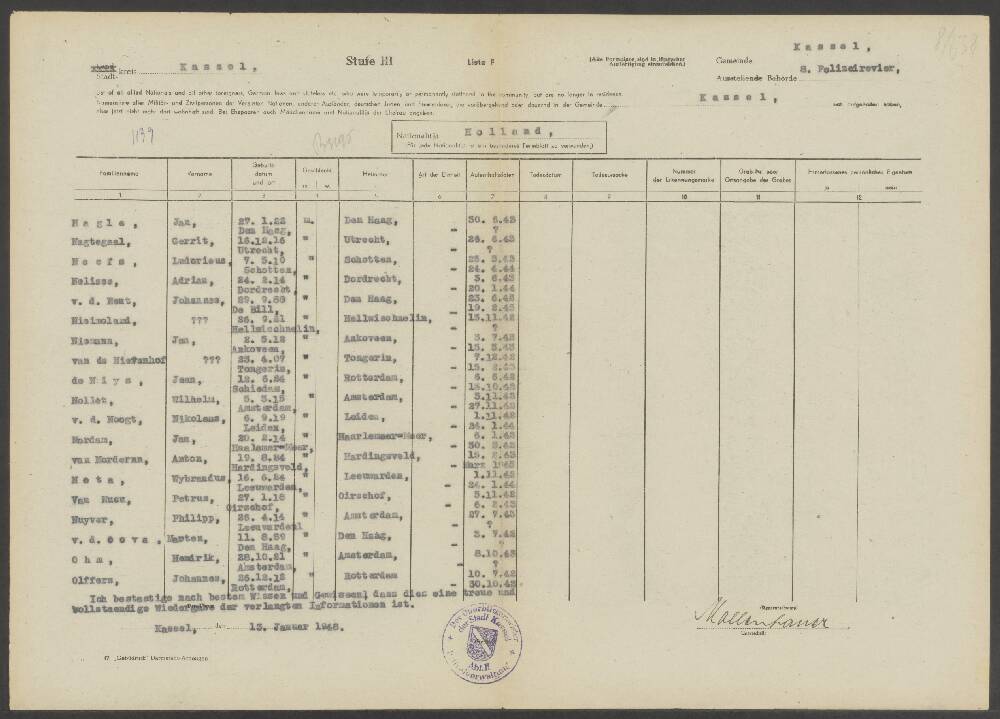 Kassel,
Stadt- kreis Kassel, Stufe III Liste F (Alle Formulare sind in 3facher Ausfertigung einzureichen.) Gemeinde
Ausstellende Behörde 8. Polizeirevier,
List of all allied Nationals and all other foreigners, German Jews and stateless etc. who were temporarily or permanently stationed in the community, but are no longer in residence.
Kassel,
aber jetzt nicht mehr dort wohnhaft sind. Bei Ehepaaren auch Mädchenname und Nationalität der Ehefrau angeben.
1139
Nationalität Holland,
(Für jede Nationalität ist ein besonderes Formblatt zu verwenden.)
Familienname Vorname Geburtsdatum und -ort Geschlecht m. w. Heimatort Art der Einheit Aufenthaltsdaten Todesdatum Todesursache Nummer der Erkennungsmarke Grab-Nr. oder Ortsangabe des Grabes Hinterlassenes persönliches Eigentum
1 2 3 4 5 6 7 8 9 10 11 12
Nagle, Jan, 27. 1.22 m. Den Haag, 30. 6.43
Den Haag, - ?
Nagtegaal, Gerrit, 16.12.16 " Utrecht, 26. 6.43
Utrecht, - ?
Neefs, Ludovicus, 7. 5.10 " Schotten, 25. 3.43
Schotten, - 24. 4.44
Nelisse, Adrian, 24. 2.14 " Dordrecht, 5. 6.43
Dordrecht, - 20. 1.44
v. d. Neut, Johannes, 29. 9.88 " Den Haag, 23. 6.43
De Bill, - 19. 2.43
Nieinoland, ??? 26. 9.21 " Hellwischnelin, 15.11.42
Hellwischnelin, - ?
Niemann, Jan, 2. 5.12 " Ankoveen, 3. 7.42
Ankoveen, - 15. 3.43
van de Nievenhof ??? 23. 4.07 " Tongerin, 7.12.42
Tongerin, - 15. 2.43
de Niys, Jean, 12. 6.24 " Rotterdam, 6. 6.42
Schiedam, - 13.10.42
Nollet, Wilhelm, 5. 3.15 " Amsterdam, 3.11.42
Amsterdam, - 27.11.42
v. d. Noogt, Nikolaus, 6. 9.19 " Leiden, 1.11.42
Leiden, - 24. 1.44
Nordam, Jan, 20. 2.14 " Haarlemmer=Meer, 6. 1.43
Haalemer=Meer, - 30. 3.43
van Norderan, Anton, 19. 8.24 " Hardingsveld, 15. 2.43
Hardingsveld, - März 1943
Nota, Wybrandus, 16. 6.24 " Leeuwarden, 1.11.42
Leeuwarden, - 24. 1.44
Van Nueu, Petrus, 27. 1.18 " Oirschof, 3.11.42
Oirschof, - 6. 2.43
Nuyver, Philipp, 26. 4.14 " Amsterdam, 27. 7.43
Leeuwarden - ?
v.d. Oova, Marten, 11. 8.89 " Den Haag, 3. 7.42
Den Haag, - ?
Ohm, Hendrik, 28.10.21 " Amsterdam, 8.10.43
Amsterdam, - ?
Olffers, Johannes, 26.12.12 " Rotterdam 10. 7.42
Rotterdam, - 30.10.43
Ich bestaetige nach bestem Wissen und Gewissen, dass dies eine treue und
vollstaendige Wiedergabe der verlangten Informationen ist.
Kassel, den 13. Januar 1948.
Mollenhauer
Der Oberbürgermeister der Stadt Kassel
Abt. II